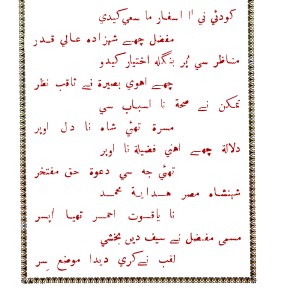 كودئي ني اا اسفار ما سعي كيدي
مفضل چھے شہزادہ عالي قدر
مناظر سي پُر بنگلہ اختيار كيدو
چھے اهوي بصيرة نے ثاقب نظر
تمكن نے صحة نا اسباب سي
مسرة تهئي شاہ نا دل اوپر
دلالة چھے اهني فضيلة نا اوپر
تهئي جہ سي دعوة حق مفتخر
شہنشاہ مصر هداية محمد
نا ياقوت احمر تهيا اْپسر
مسمى مفضل نے سيف دين بخشي
لقب نے كري ديدا موضع سِر